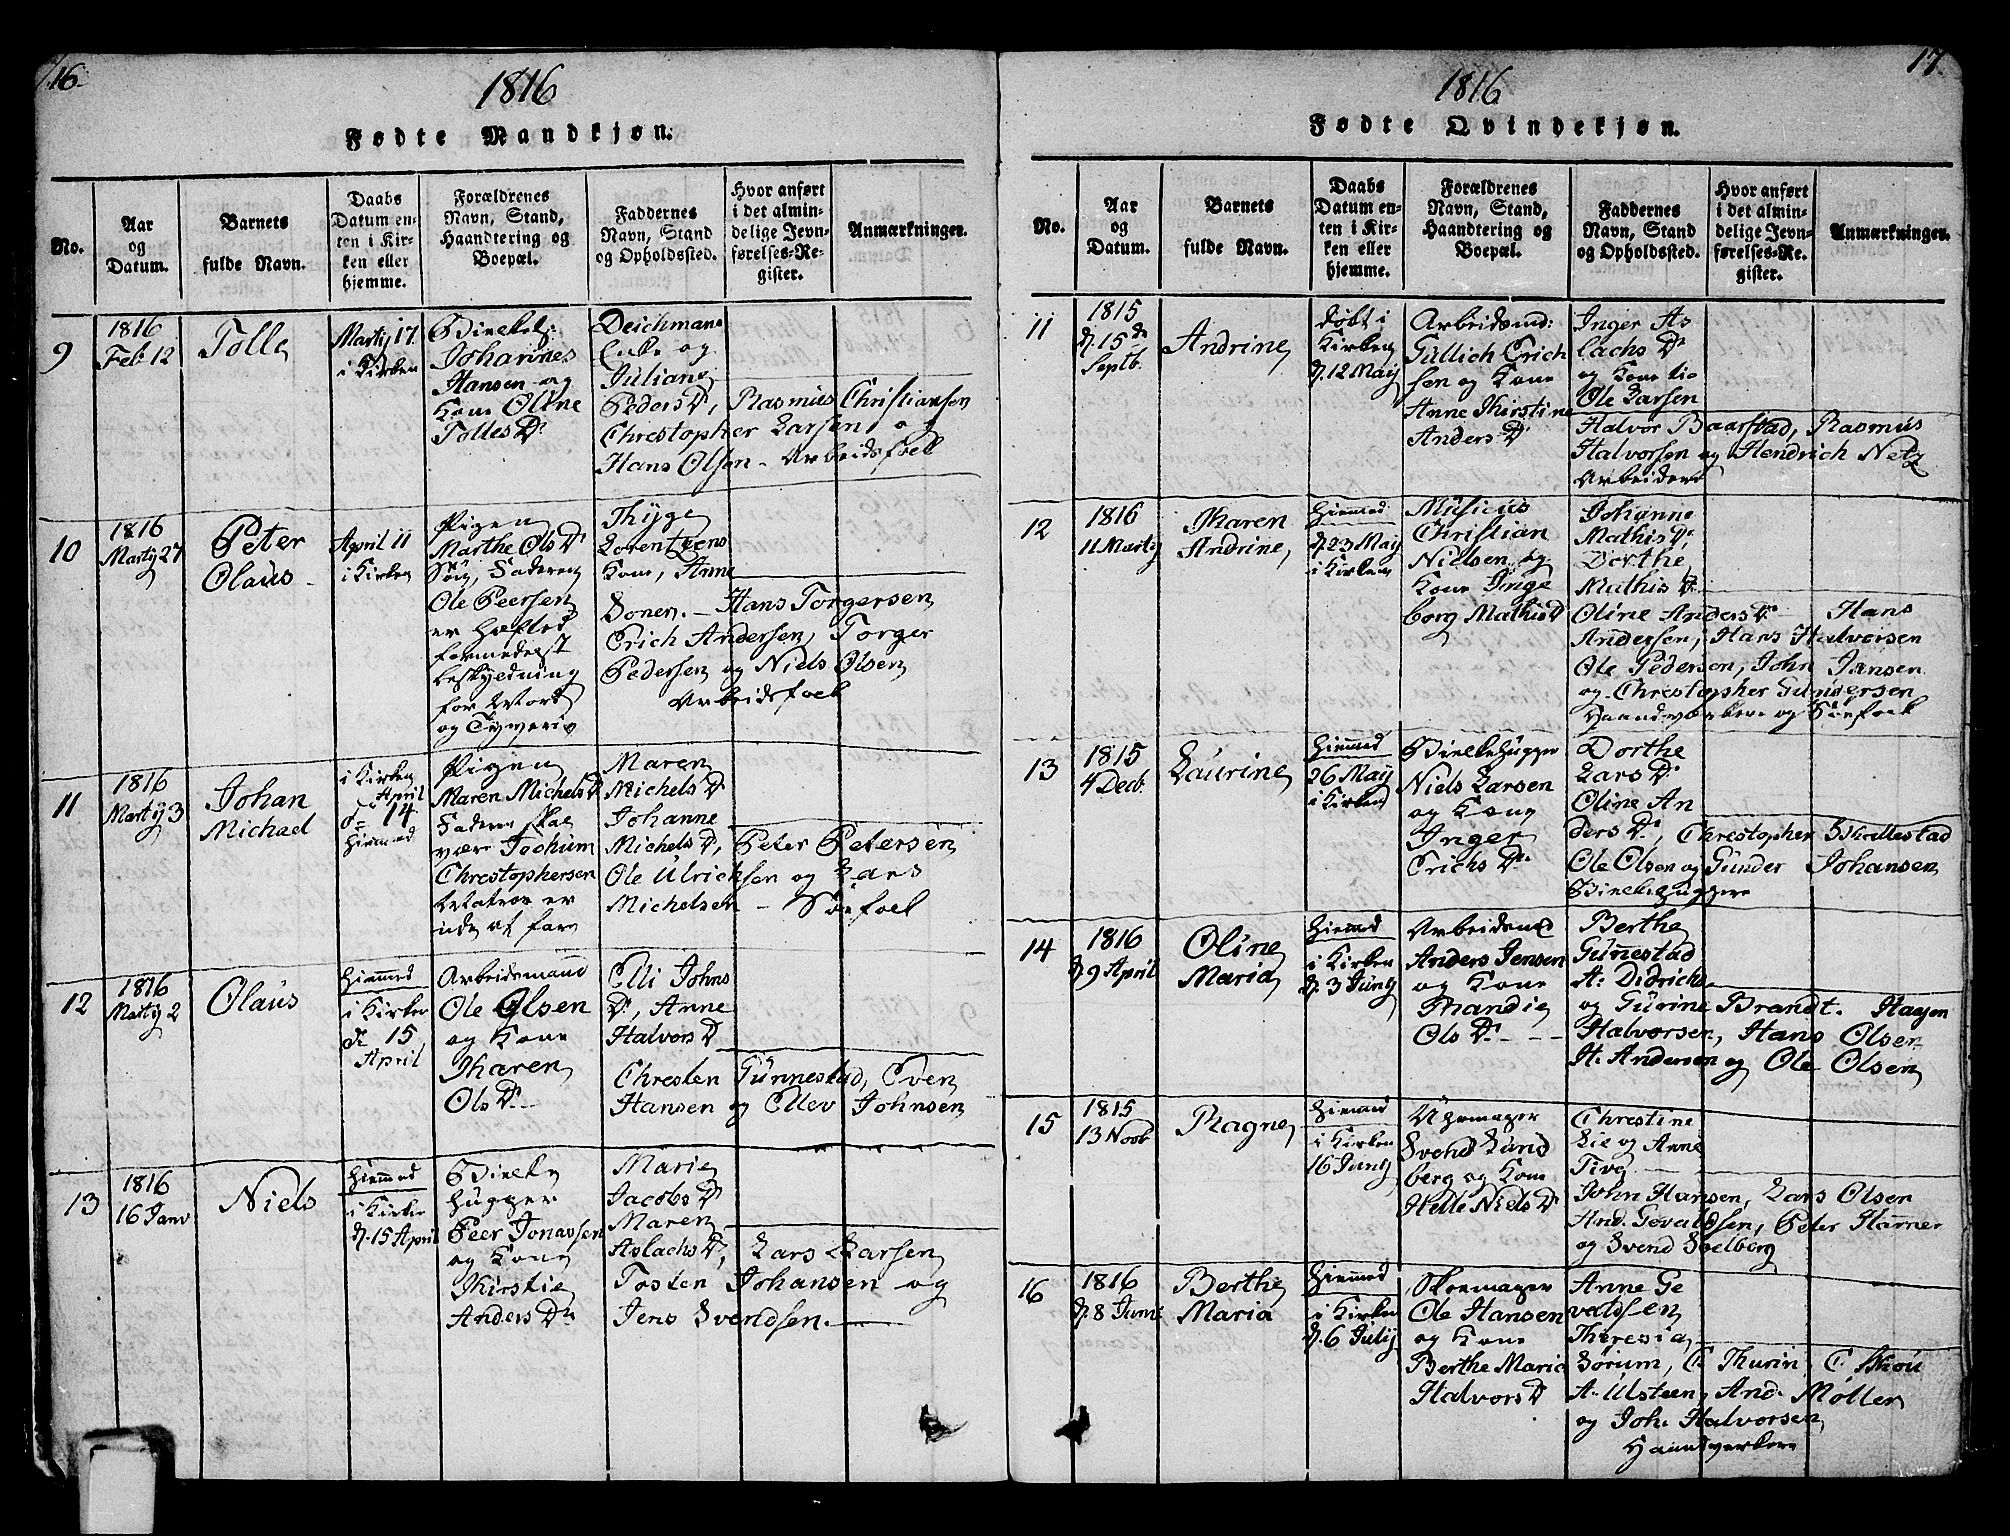 16.
1816
Fødte Mandkjøn.
No.
Aar
og
Datum.
Barnets
fulde Navn.
Daabs
Datum en-
ten i Kir-
ken eller
hjemme.
Forældrenes
Navn, Stand,
Haandtering og
Boepæl.
Faddernes
Navn, Stand
og Opholdssted.
Hvor anført
i det almin-
delige Jevn-
førelses-Re-
gister.
Anmærkninger.
9
1816
Feb. 12
Tolle
Martij 17.
i Kirken
Johannes
Hansen og
Kone Oline
Tolles Dr
Deichmans
Enke og
Juliane
Peders Dr, Rasmus Christiansen
Chrestopher Larsen, og
Hans Olsen - Arbeidsfolk
10
1816
Martij 27
Peter
Olaus
April 11
i Kirken
Pigen
Marthe Ols Dr
Søn, Faderen
Ole Peersen
er hæftet
formedelst
beskyldning
for Mord
og Tyverie
Thyge
Lorentzens
Kone, Anne
Doner. - Hans Torgersen
Erich Andersen, Torger
Pedersen og Niels Olsen
Arbeidsfolk
11
1816
Martij 3
Johan
Michael
i Kirken
April
d. 14
hiemmed
Pigen
Maren Michels Dr
Faderen skal
være Jochum
Chrestophersen
Matros er
ude at fare
Maren
Michels Dr
Johanne
Michels Dr, Peter Petersen
Ole Ulrichsen og Lars
Michelsen - Søefolk
12
1816
Martij 2
Olaus
hiemmed
i Kirken
d. 15
April
Arbeidsmand
Ole Olsen
og Kone
Karen
Ols Dr
Elli Johns
Dr, Anne
Halvors Dr
Chresten Gunnestad, Even
Hansen og Ellev Johnsen
13
1816
16 Janv
Niels
hiemmed
i Kirken
d. 15 April
hugger
Peer Jonassen
og Kone
Kirstie
Anders Dr
Marie
Jacobs Dr
Maren
Aslachs Dr, Lars Larsen
Tosten Johansen og
Jens Svendsen.
17.
1816
Fødte Qvindekjøn.
No.
Aar
og
Datum.
Barnets
fulde Navn.
Daabs
Datum en-
ten i Kir-
ken eller
hjemme.
Forældrenes
Navn, Stand,
Haandtering og
Boepæl.
Faddernes
Navn, Stand
og Opholdssted.
Hvor anført
i det almin-
delige Jevn-
førelses-Re-
gister.
Anmærkninger.
11
1815
d. 15de
Septb.
Andrine
døbt i
Kirken
d. 12 Maij
Arbeidsmd:
Gullich Erich
sen og Kone
Anne Kirstine
Anders Dr
Inger As
lachs Dr
og Kone
Ole Larsen
Halvor Baarstad, Rasmus
Halvorsen og Hendrich Netz
Arbeidere
12
1816
11 Martij
Karen
Andrine
hiemmed
d. 23 Maij
i Kirken
Musicus
Christian
Nielsen og
Kone Inge
borg Mathis Dr
Johanne
Mathis Dr,
Dorthe
Mathis Dr
Oline Anders Dr Hans
Andersen, Hans Halvorsen
Ole Pedersen, John Jansen
og Chrestopher Gundersen
Haandværkere og Søefolk
13
1815
4 Decb.
Laurine
hiemmed
26 Maij
i Kirken
Niels Larsen
og Kone
Inger
Erichs Dr.
Dorthe
Lars Dr
Oline An
ders Dr, Chrestopher Skallestad
Ole Olsen og Gunder Johansen
14
1816
d. 9 April
Oline
Maria
hiemmed
i Kirken
d. 3 Junij
Arbeidsmd
Anders Jensen
og Kone
Randie
Ols Dr
Berthe
Gunnestad
A. Didrichs
og Gurine Brandt. Haagen
Halvorsen, Hans Olsen
H. Andersen og Ole Olsen
15
1815
13 Novb.
Ragne
hiemmed
i Kirken
16 Junij
Uhrmager
Svend Lund
berg og Kone
Helle Niels Dr
Chrestine
Lie og Anne
Tivg
John Hansen, Lars Olsen
And. Gevaldsen, Peter Hammer
og Svend Solberg
16
1816
d. 8 Juni
Berthe
Maria
hiemmed
i Kirken
d. 6 Julij
Skoemager
Ole Hansen
og Kone
Berthe Maria
Halvors Dr
Anne Ge
valdsen
Theresia
Sørum, C. Thurin, C. Skou
A. Ulsteen, And. Møller
og Joh. Halvorsen,
Haandværkere